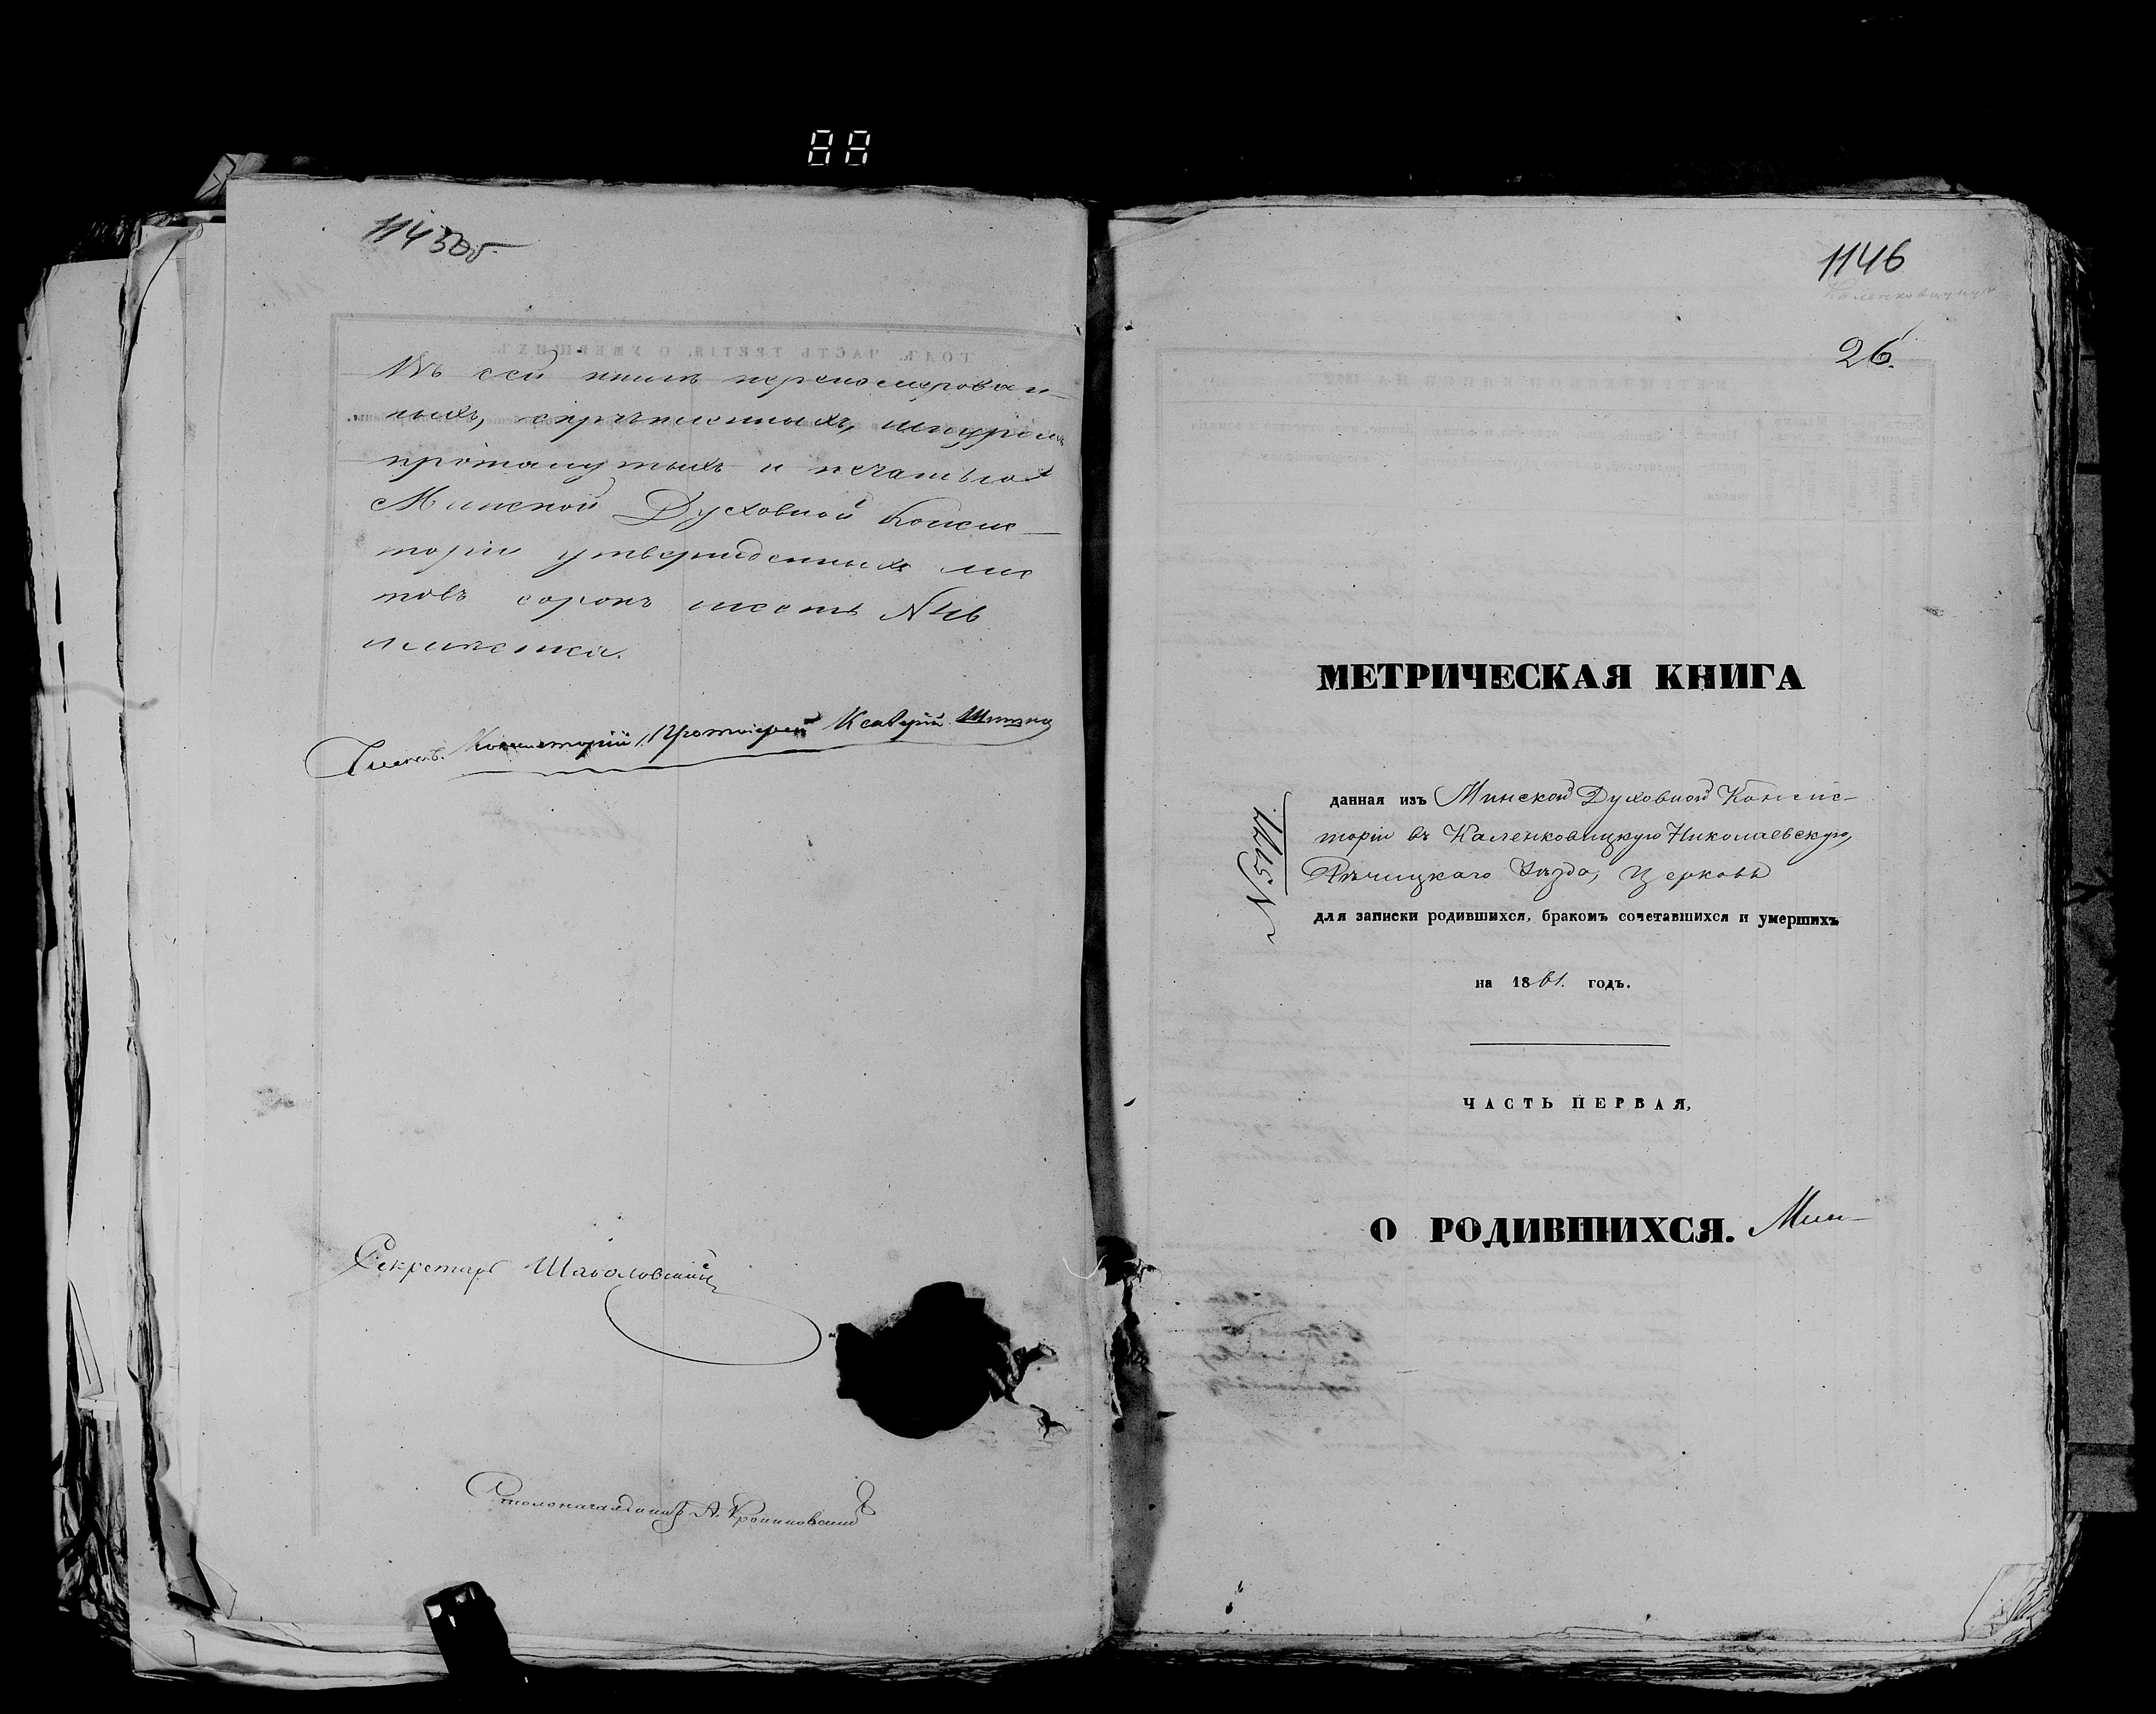 1145об
Въ сей книгѣ перенумерован-
ныхъ, скрѣпленныхъ, шнуромъ
протянутыхъ и печатью
Минской Духовной Консис-
торіи утвержденныхъ лис
товъ сорокъ шесть №46
Членъ Консисторіи, Протоіерей Ксаверій
Секретарь
Столоначальникъ А.
1146
26.
МЕТРИЧЕСКАЯ КНИГА
данная изъ Минской Духовной Консис-
торіи въ Каленковицкую Николаевскую,
Рѣчицкаго Уѣзда, Церковь
для записки родившихся, бракомъ сочетавшихся и умершихъ
на 1861. годъ.
ЧАСТЬ ПЕРВАЯ,
О РОДИВШИХСЯ. Мин-